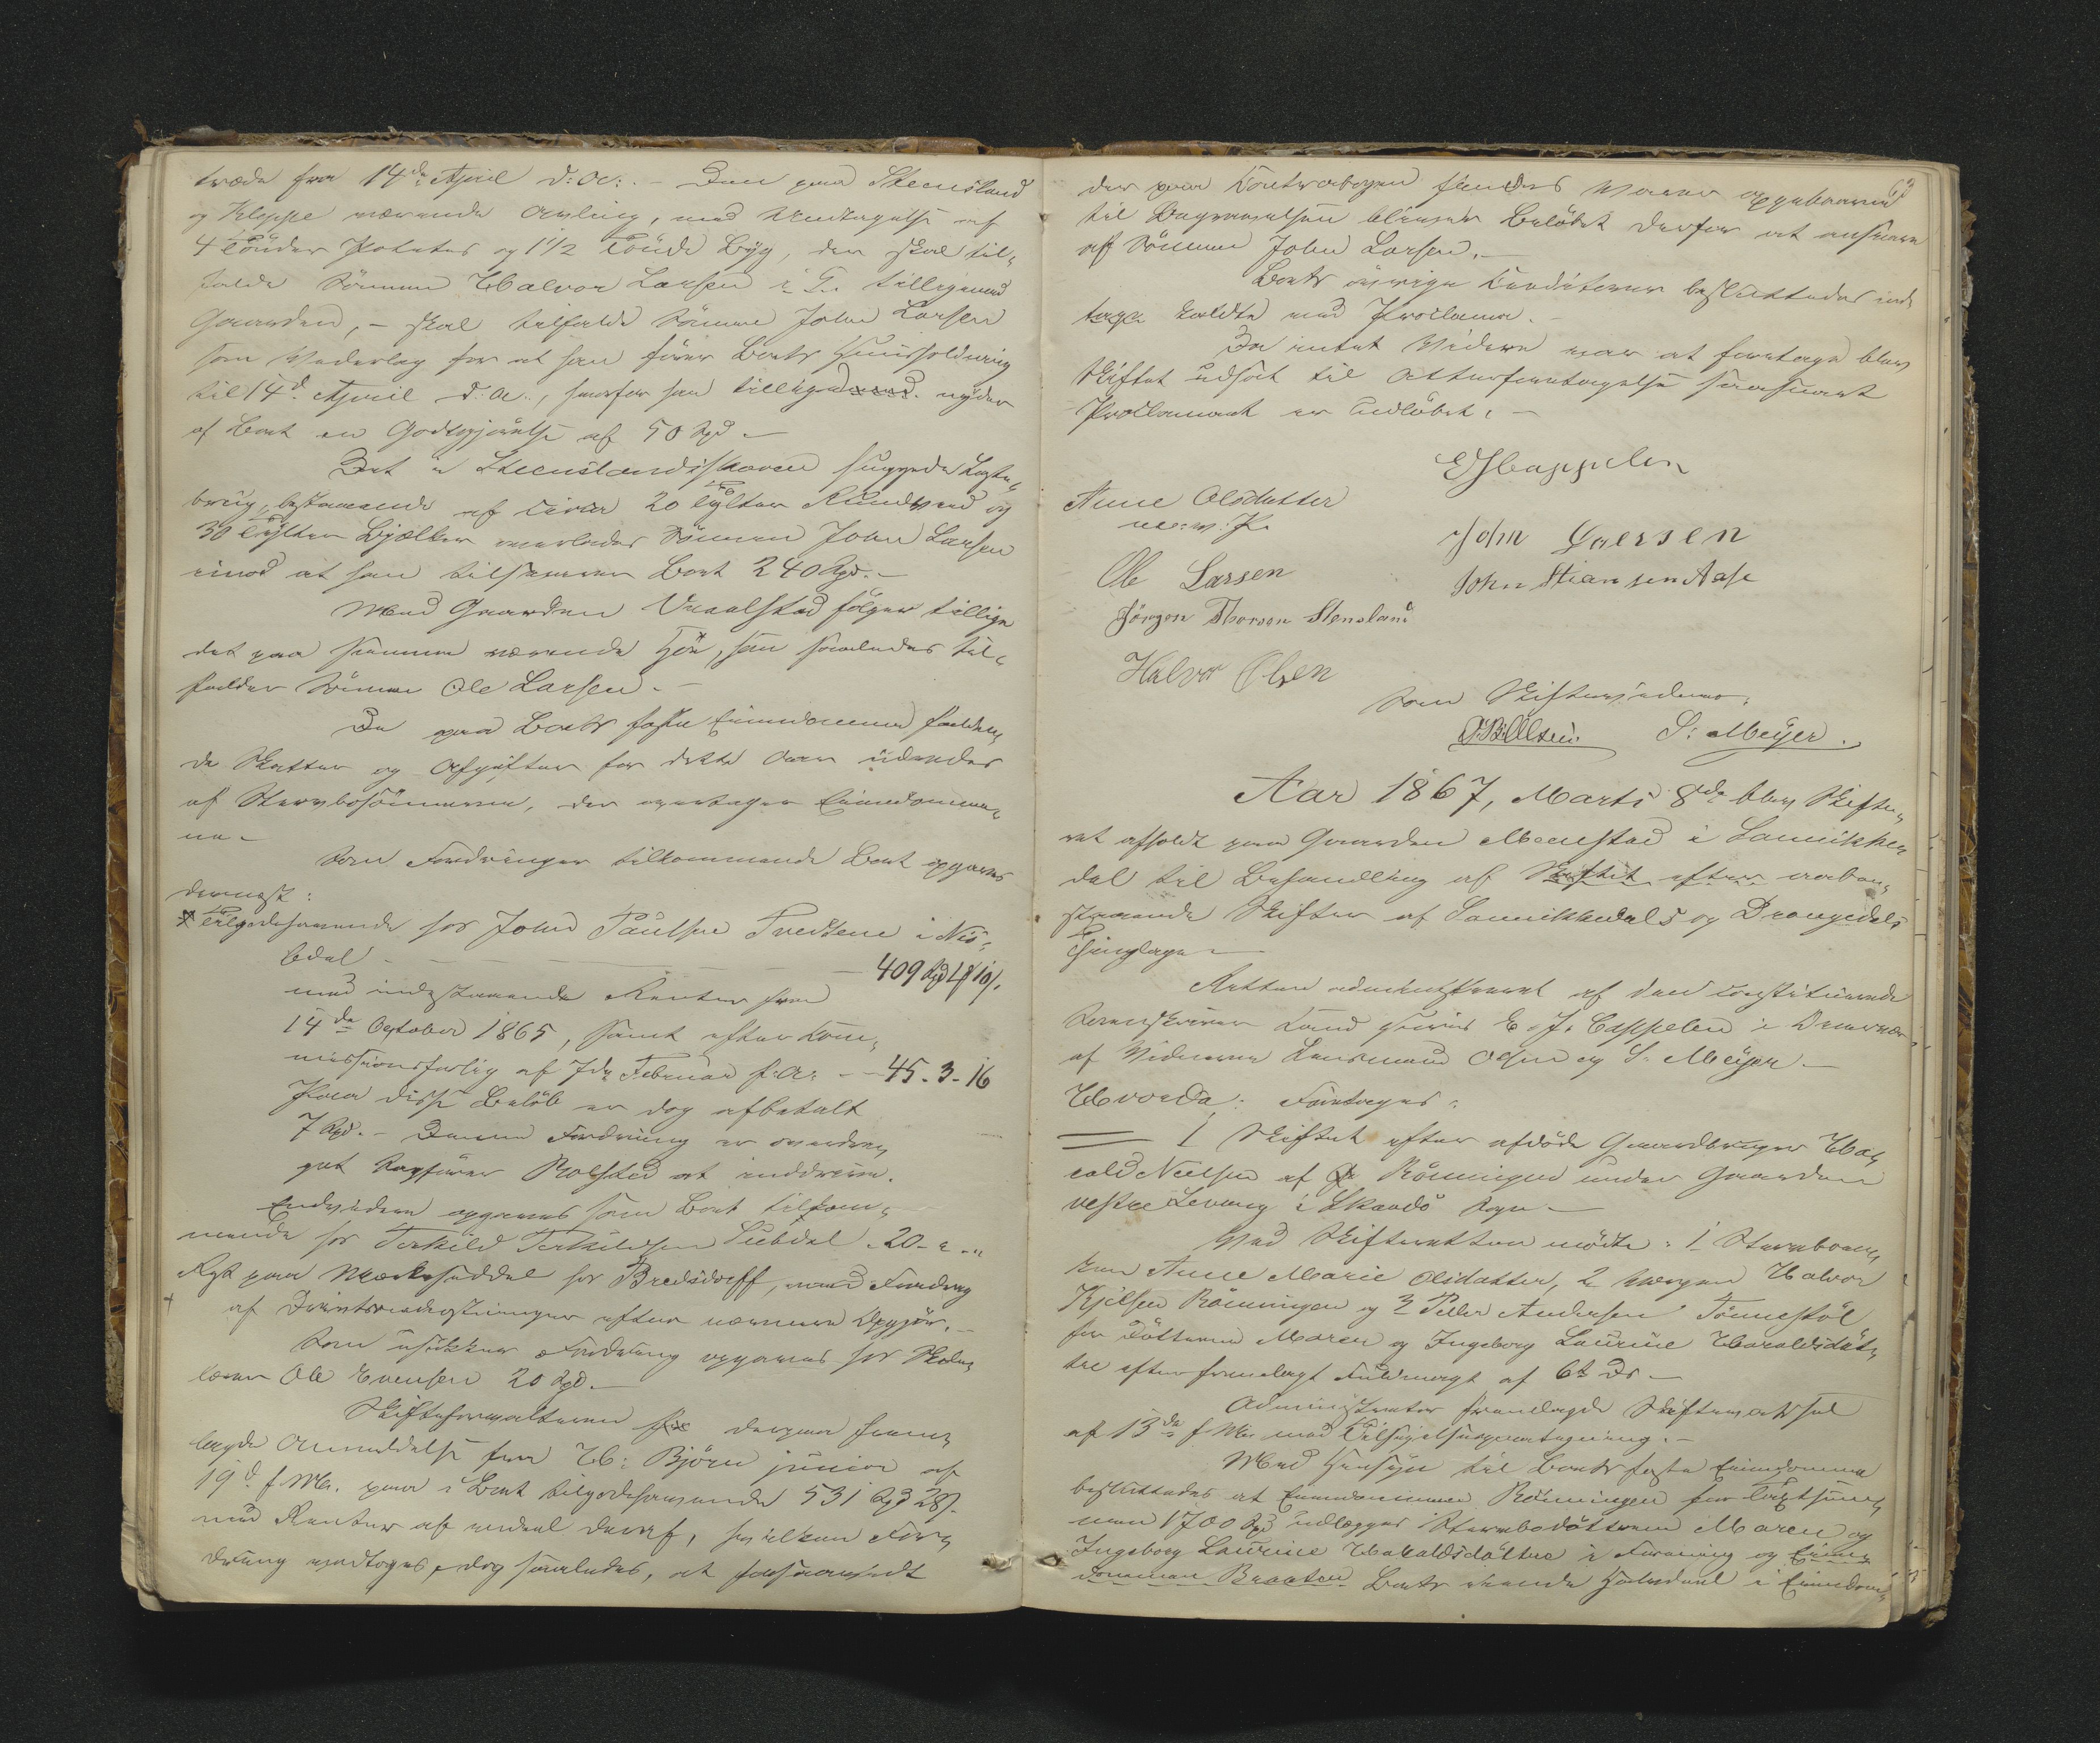 træde fra 14de April d: A:. – Den paa Steensland
og Kleppe værende Avling, med Undtagelse af
4 Tönder Potetes og 1 1/2 Tönde Byg, der skal til-
falde Sönnen Halvor Larsen i F. tilligemed
Gaarden, – skal tilfalde Sönnen John Larsen
som Vederlag for at han förer Boets Huusholdning
til 14d. April d: A:, hvorfor han tillige nyder
af Boet en Godtgjörelse af 50 Spd –
Det i Steenslandsskoven huggede Laste-
brug, bestaaende af circa 20 Tylter Rundved og
30 Tylter Bjelker overlades Sönnen John Larsen
imod at han tilsvarer Boet 240 Spd. –
Med Gaarden Vraalstad fölger tillige
det paa samme værende Hö, som saaledes til-
falder Sönnen Ole Larsen. –
De paa Boets faste Eiendomme falden-
de Skatter og Afgifter for dette Aar udredes
af Stervbosönnerne, der overtager Eiendomme-
ne –
Som Fordringer tilkommende Boet opgaves
dernæst:
Tilgodehavende hos John Paulsen Tvedtene i Nis-
sedal – – – 409 Spd 4 # 10 s.
med indestaaende Renter fra
14de October 1865, samt efter Kom-
missionsforlig af 7de Februar f: A: – 45. 3. 16
Paa disse Beløb er dog afbetalt
7 Spd. – Denne Fordring er overdra-
get Sagförer Rolsted at inddrive.
Endvidere opgaves som Boet tilkom-
mende hos Terkild Terkildsen Lubdal . 20 - " - "
Rest paa Mærkeseddel hos Bredsdorff, med Fradrag
af Driftsomkostninger efter nærmere Opgjör. –
Som usikker Fordring opgaves hos Skole-
lærer Ole Evensen 20 Spd. –
Skifteforvalteren derpaa frem-
lagde Anmeldelse fra H: Björn junior af
19d. f. M. paa i Boet tilgodehavende 531 Spd 28 s.
med Renter af endeel deraf, hvilken For-
dring vedtoges, dog saaledes, at forsaavidt
63
der paa Contrabogen findes Varer opgebaaret
til Begravelsen bliver Belöbet derfor at ansvare
af Sönnen John Larsen. –
Boets övrige Creditorer besluttedes ind-
kaldte med Proclama. –
Da intet Videre var at foretage blev
Skiftet udsat til Atterforetagelse saasnart
Proclamaet er udlöbet. –
EJCappelen
Anne Olsdatter
m: p: P.
John Laersen
Ole Larsen
John Stiansen Aase
Jörgen Thorsen Stensland
Halvor Olsen
Som Skiftevidner:
Olsen. S: Meÿer.
Aar 1867, Marts 8de blev Skifte-
ret afholdt paa Gaarden Meenstad i Sannikke-
dal til Behandling af Skiftet efter aaben-
staaende Skifter af Sannikkedals og Drangedals
Thinglage –
Retten administreret af den constituerede
Sorenskriver Cand juris E. J. Cappelen i Overvær
af Vidnerne Lensmand Olsen og S. Meÿer –
Hvorda: Foretoges:
1 Skiftet efter afdöde Gaardbruger Ha-
rald Nielsen af Rönningen under Gaarden
vestre Levang i Skaadö Sogn –
Ved Skifteretten mödte: 1 Stervboen-
ken Anne Marie Olsdatter, 2 Værgen Halvor
Kjelsen Rönningen og 3 Peder Andersen Tönnestöl
for Döttrene Maren og Ingeborg Laurine Haraldsdöt-
tre efter fremlagt Fuldmagt af 6te ds –
Administrator fremlagde Skifteværksel
af 13de f. M. med Tilsigelsespaategning. –
Med Hensyn til Boets faste Eiendomme
besluttedes at Eiendommen Rönningen for Taxtsum-
men 1700 Spd udlægges Stervbodöttrene Maren og
Ingeborg Laurine Haraldsdöttre i Forening og Eien-
dommen Braaten Boets eiende Halvdeel i Eiendom-